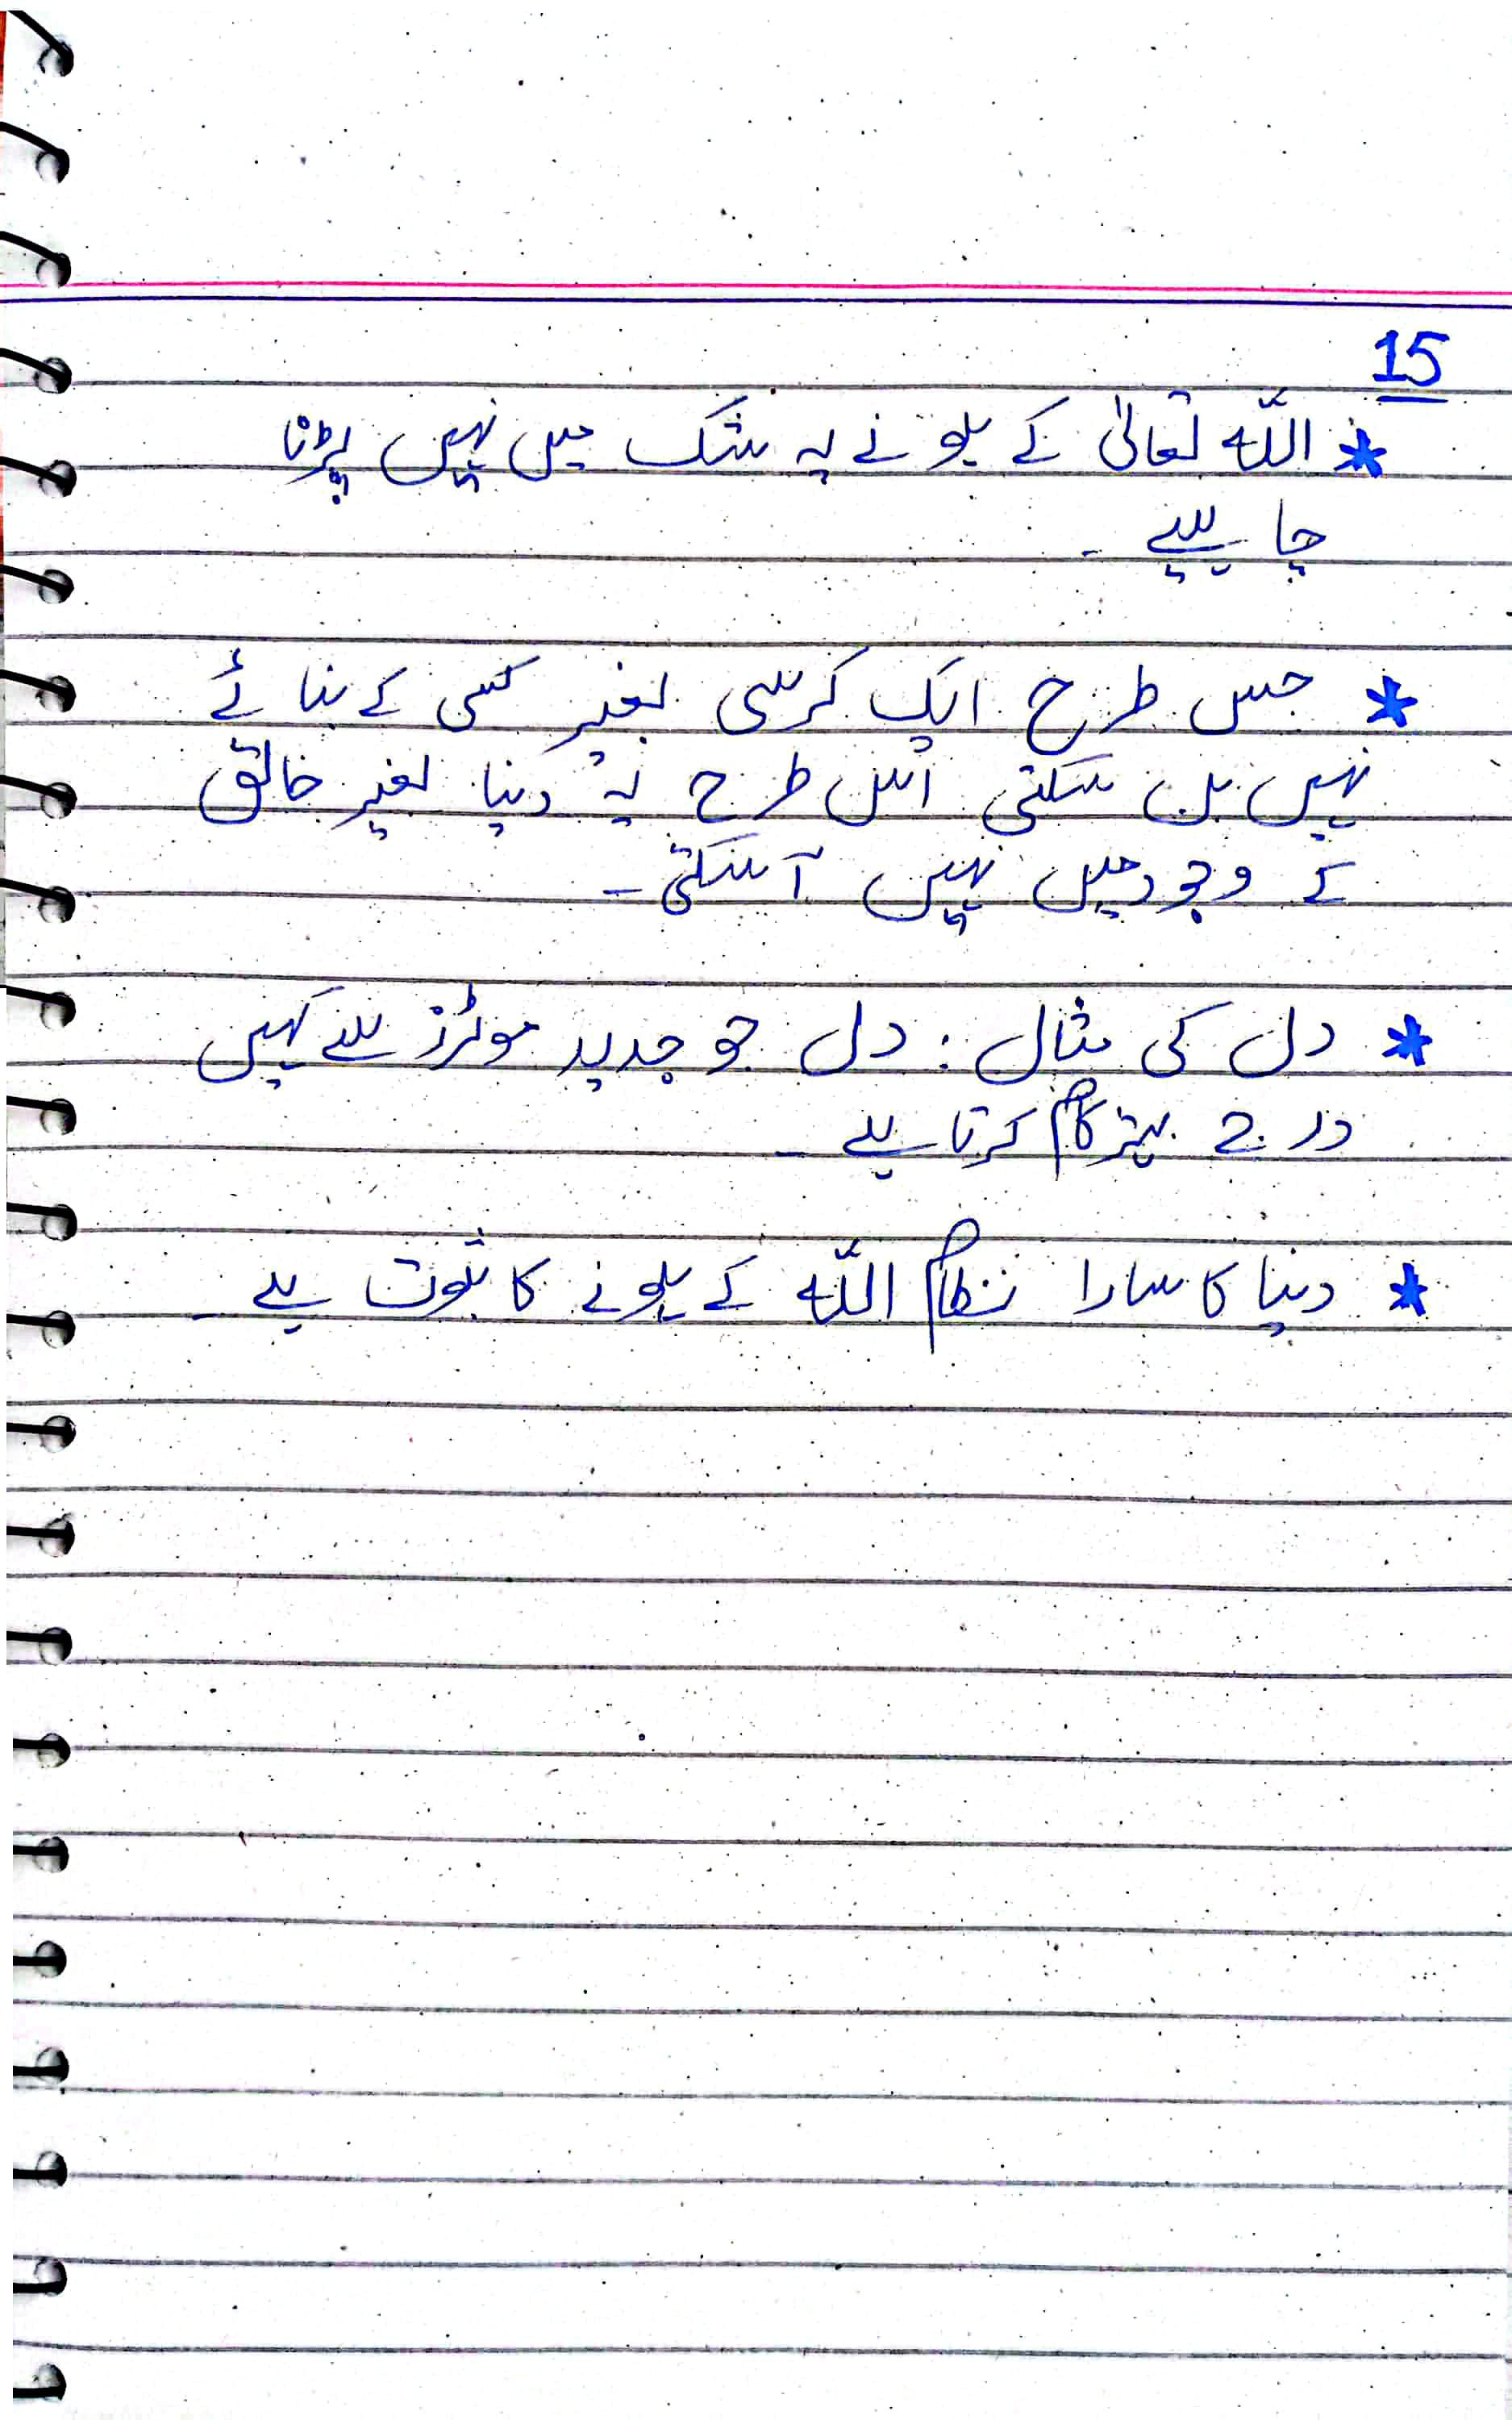 15
* اللہ تعالیٰ کے ہونے پہ شک میں نہیں پڑنا
چاہیے ۔
* جس طرح ایک کرسی بغیر کسی کے بنائے
نہیں بن سکتی اس طرح یہ دنیا بغیر خالق
کے وجود میں نہیں آ سکتی ۔
* دل کی مثال : دل جو جدید موٹرز سے کہیں
درجے بہتر کام کرتا ہے ۔
* دنیا کا سارا نظام اللہ کے ہونے کا ثبوت ہے ۔